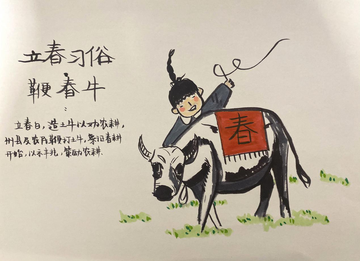 立春习俗
鞭春牛
:
立春日，造土牛以劝农耕，
州县及农民鞭打土牛，象征春耕
开始，以示丰兆，策励农耕.
春